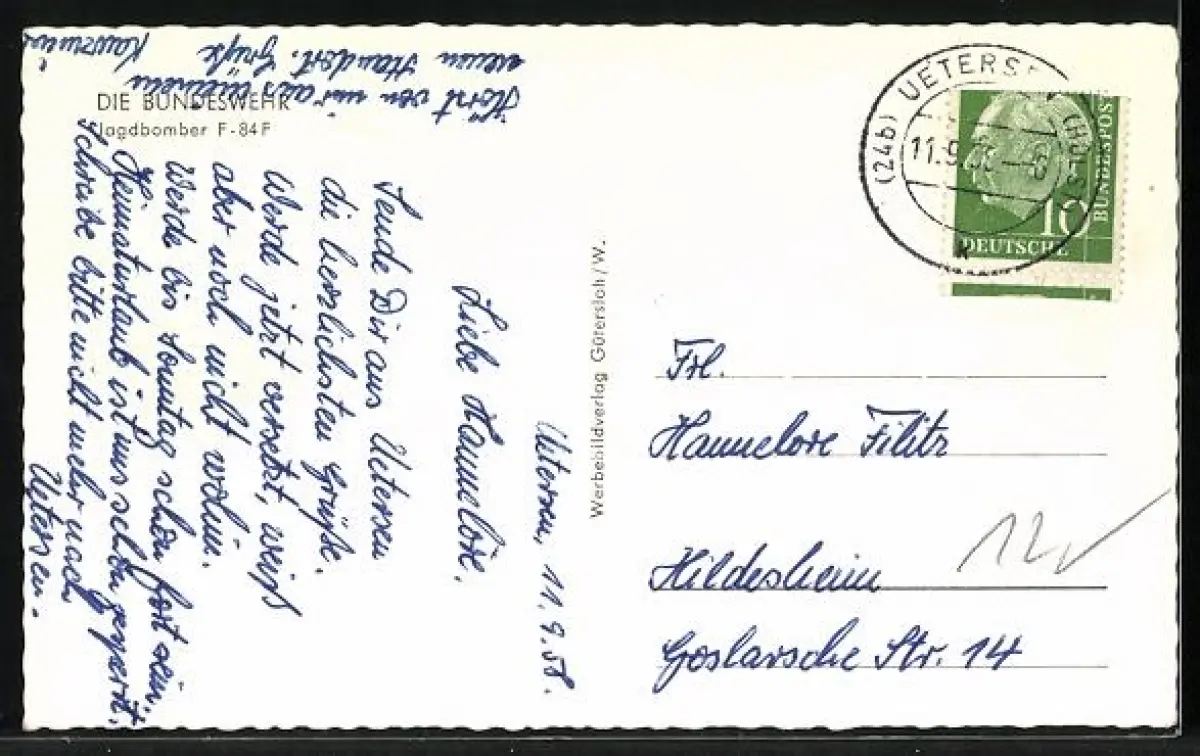 DIE BUNDESWEHR
Jagdbomber F-84F
Uetersen, 11.9.58.
Liebe Hannelore.
Sende Dir aus Uetersen
die herzlichsten Grüße.
Werde jetzt versetzt, weiß
aber noch nicht wohin.
Werde bis Sonntag schon fort sein.
Heimaturlaub ist uns schon gesperrt.
Schreibe bitte nicht mehr nach
Uetersen.
Hörst von mir aus meinem
neuen Standort. Grüße
Werbebildverlag Gütersloh/W.
(24b) UETERSE (HOLST
11.9.58
DEUTSCHE
BUNDESPOST
10
Frl.
Hannelore Filitz
Hildesheim
Goslarsche Str. 14
12